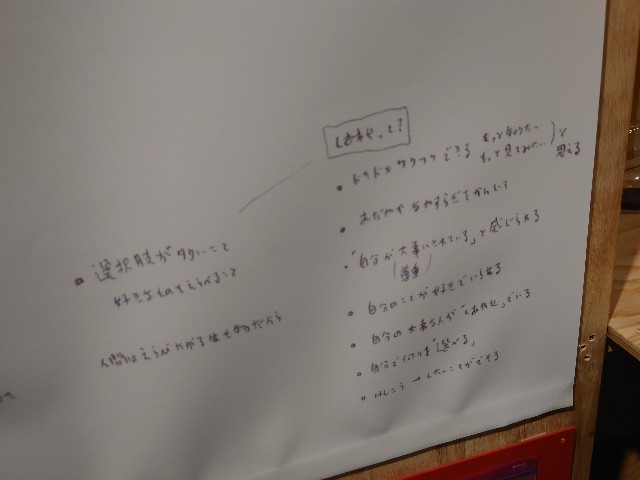 しあわせって?
・ドキドキワクワクできる もっと知りたい もっと見てみたい)と思える
・おだやか なやすらぎをかんじ
・「自分が大事にされている」と感じられる
(尊重)
・自分のことが好きでいられる
・自分の大事な人が「しあわせ」でいる
・自分で何かを「選べる」
・けんこう → したいことができる
・選択肢が多いこと
好きなものをえらべること
人間はえらびたがる生き物だから